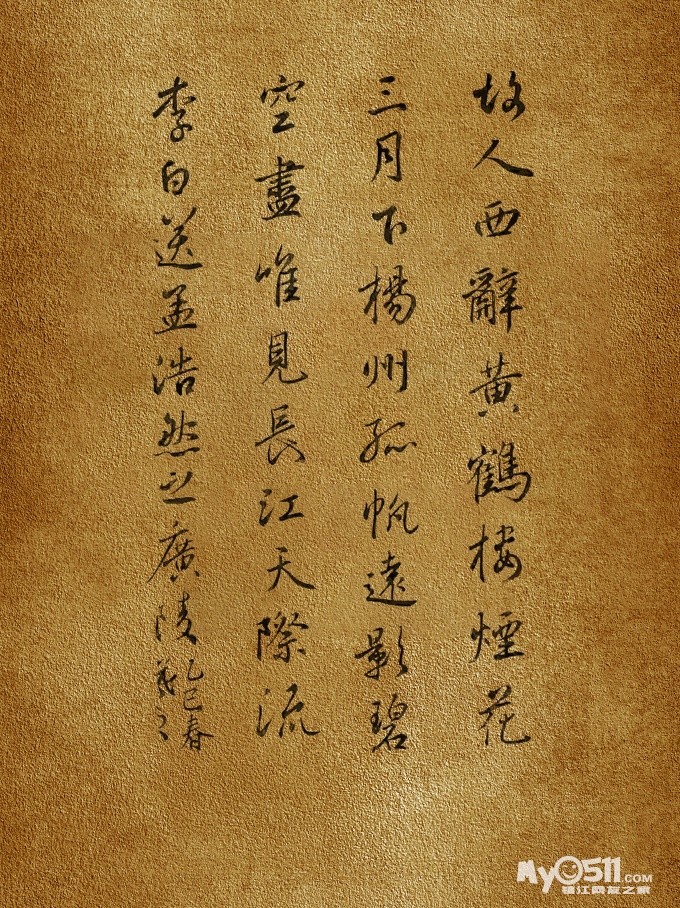 故人西辭黃鶴樓煙花
三月下楊州孤帆遠影碧
空盡唯見長江天際流
李白送孟浩然之廣陵
乙巳春
My0511.COM
镇江网友之家